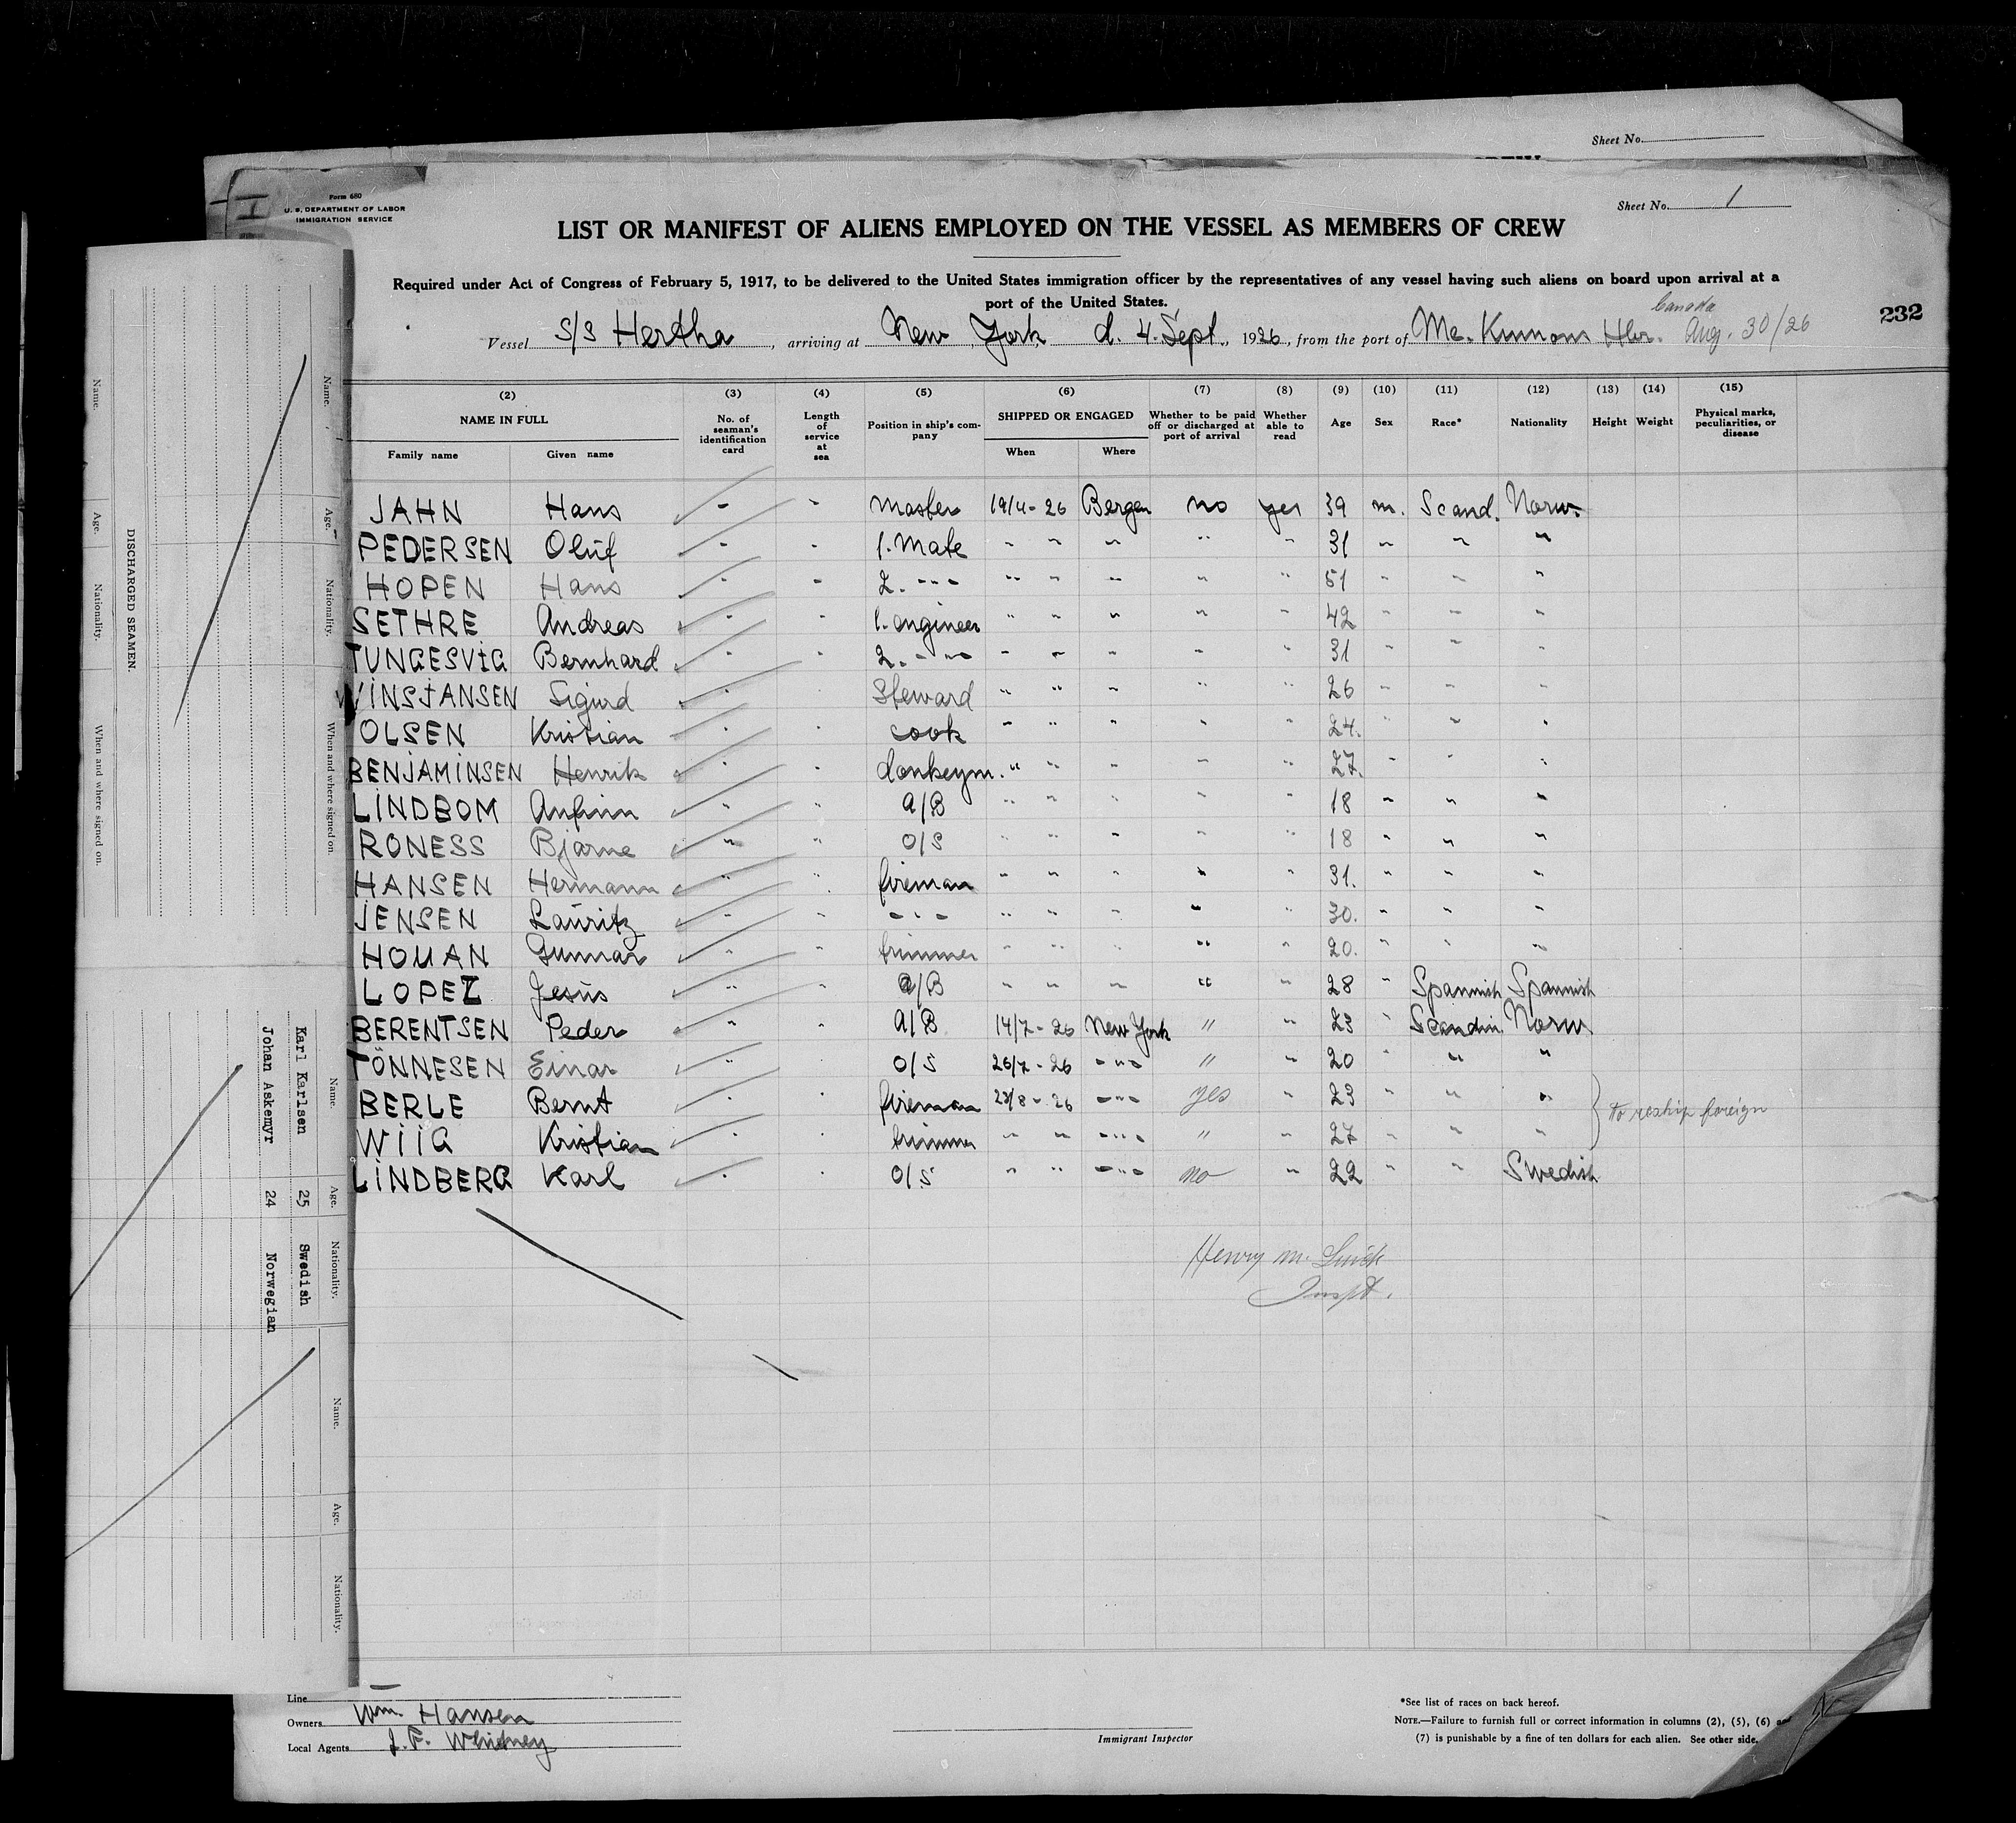 Sheet No.
Form 680
U. S. DEPARTMENT OF LABOR
IMMIGRATION SERVICE
Sheet No. 1
LIST OR MANIFEST OF ALIENS EMPLOYED ON THE VESSEL AS MEMBERS OF CREW
Required under Act of Congress of February 5, 1917, to be delivered to the United States immigration officer by the representatives of any vessel having such aliens on board upon arrival at a
port of the United States.
Canada
232
Vessel S/S Hertha, arriving at New York d. 4. Sept., 1926, from the port of Mc. Kinnon Hbr. Aug. 30/26
(2) (3) (4) (5) (6) (7) (8) (9) (10) (11) (12) (13) (14) (15)
NAME IN FULL No. of seaman's identification card Length of service at sea Position in ship's company SHIPPED OR ENGAGED Whether to be paid off or discharged at port of arrival Whether able to read Age Sex Race* Nationality Height Weight Physical marks, peculiarities, or disease
Family name Given name When Where
JAHN Hans - - Master 19/4-26 Bergen no yes 39 m. Scand. Norw.
PEDERSEN Oluf - - 1. Mate " " " " " 31 " " "
HOPEN Hans - - 2. -"- " " " " " 51 " " "
SETHRE Andreas - - 1. engineer " " " " " 42 " " "
TUNGESVIG Bernhard - - 2. -"- " " " " " 31 " " "
VINSJANSEN Sigurd - - Steward " " " " " 26 " " "
OLSEN Kristian - - cook " " " " " 24. " " "
BENJAMINSEN Henrik - - donkeym. " " " " " 27. " " "
LINDBOM Anfinn " " A/B " " " " " 18 " " "
RONESS Bjarne " " O/S " " " " " 18 " " "
HANSEN Hermann " " fireman " " " " " 31. " " "
JENSEN Lauritz " " -"- " " " " " 30. " " "
HOUAN Gunnar " " trimmer " " " " " 20. " " "
LOPEZ Jesus " " A/B " " " " " 28 " Spannish Spannish
BERENTSEN Peder " " A/B 14/7-26 New York " " 23 " Scandin. Norw.
TÖNNESEN Einar " " O/S 26/7-26 -"- " " 20 " " "
BERLE Bernt - - fireman 23/8-26 -"- yes " 23 " " " } to reship foreign
WIIG Kristian - - trimmer " " -"- " " 27 " " "
LINDBERG Karl - - O/S " " -"- no " 22 " " Swedish
Henry M.
Inspt.
Line
Owners Wm. Hansen
Local Agents J. F. Whitney
Immigrant Inspector
*See list of races on back hereof.
NOTE.—Failure to furnish full or correct information in columns (2), (5), (6)
(7) is punishable by a fine of ten dollars for each alien. See other side.
DISCHARGED SEAMEN.
Name. Age. Nationality. When and where signed on.
Name. Age. Nationality. When and where signed on.
Name. Age. Nationality.
Karl Karlsen 25 Swedish
Johan Askemyr 24 Norwegian
Name. Age. Nationality.